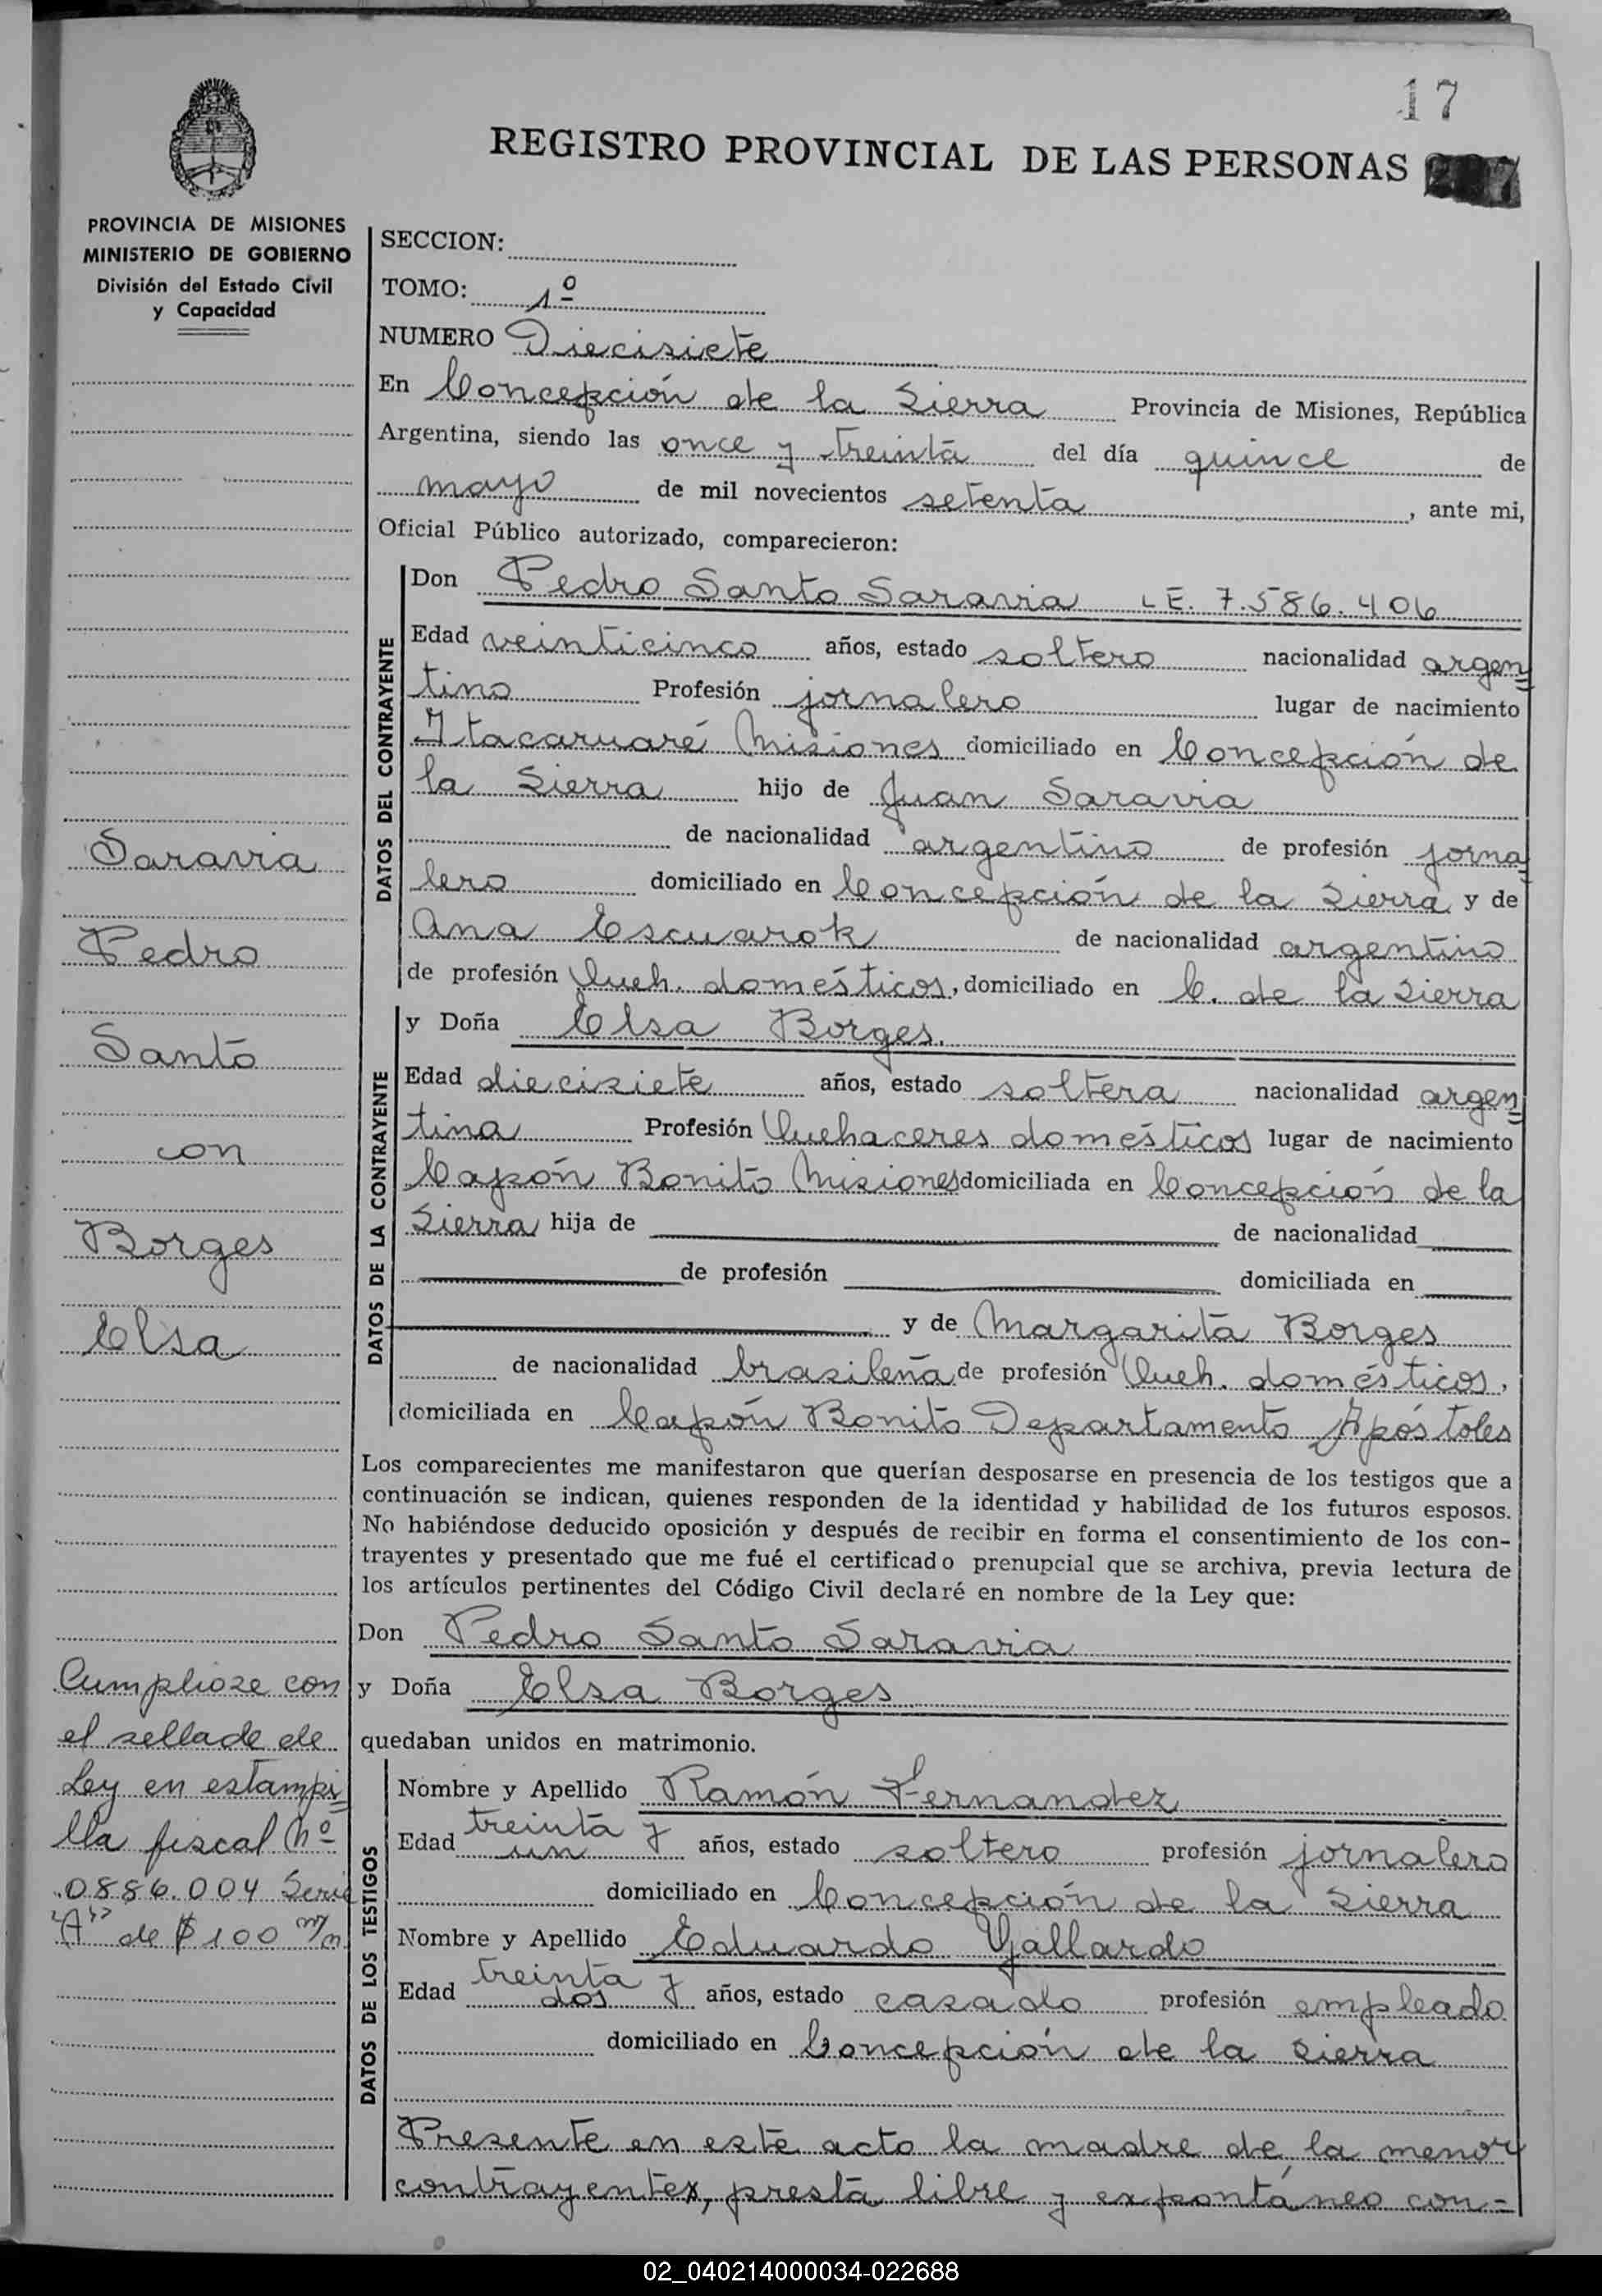 17
REGISTRO PROVINCIAL DE LAS PERSONAS
PROVINCIA DE MISIONES
MINISTERIO DE GOBIERNO
División del Estado Civil
y Capacidad
SECCION:
TOMO: 1º
NUMERO Diecisiete
En Concepción de la Sierra Provincia de Misiones, República
Argentina, siendo las once y treinta del día quince de
mayo de mil novecientos setenta, ante mi,
Oficial Público autorizado, comparecieron:
DATOS DEL CONTRAYENTE
Don Pedro Santo Saravia L E. 7.586.406
Edad veinticinco años, estado soltero nacionalidad argen=
tino Profesión jornalero lugar de nacimiento
Itacaruaré Misiones domiciliado en Concepción de
la Sierra hijo de Juan Saravia
de nacionalidad argentino de profesión jorna
lero domiciliado en Concepción de la Sierra y de
Ana Escuarok de nacionalidad argentino
de profesión Queh. domésticos, domiciliado en C. de la Sierra
DATOS DE LA CONTRAYENTE
y Doña Elsa Borges.
Edad diecisiete años, estado soltera nacionalidad argen=
tina Profesión Quehaceres domésticos lugar de nacimiento
Capón Bonito Misiones domiciliada en Concepción de la
Sierra hija de de nacionalidad
de profesión domiciliada en
y de Margarita Borges
de nacionalidad brasileña de profesión Queh. domésticos,
domiciliada en Capón Bonito Departamento Apóstoles
Los comparecientes me manifestaron que querían desposarse en presencia de los testigos que a
continuación se indican, quienes responden de la identidad y habilidad de los futuros esposos.
No habiéndose deducido oposición y después de recibir en forma el consentimiento de los con-
trayentes y presentado que me fué el certificado prenupcial que se archiva, previa lectura de
los artículos pertinentes del Código Civil declaré en nombre de la Ley que:
Don Pedro Santo Saravia
y Doña Elsa Borges
quedaban unidos en matrimonio.
DATOS DE LOS TESTIGOS
Nombre y Apellido Ramón Fernandez
Edad treinta y un años, estado soltero profesión jornalero
domiciliado en Concepción de la Sierra
Nombre y Apellido Eduardo Gallardo
Edad treinta y dos años, estado casado profesión empleado
domiciliado en Concepción de la Sierra
Presente en este acto la madre de la menor
contrayente, presta libre y expontáneo con=
Saravia
Pedro
Santo
con
Borges
Elsa
Cumpliose con
el sellado de
Ley en estampi=
lla fiscal Nº
0886.004 Serie
"A" de $ 100 m/n
02_040214000034-022688